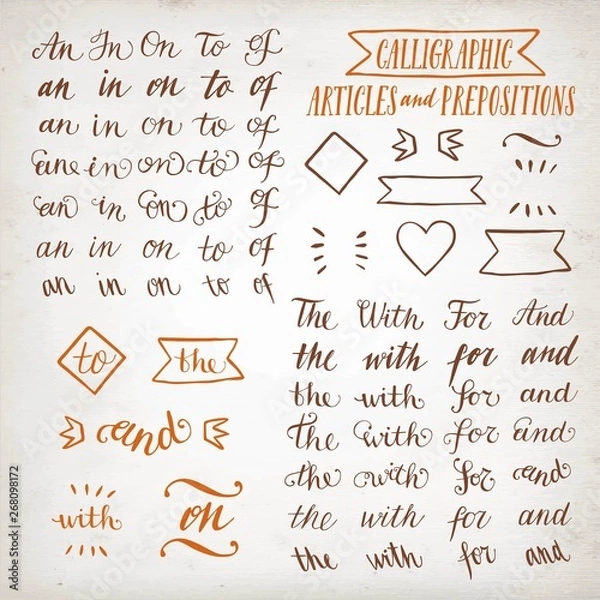 An In On To of
an in on to of
an in on to of
an in on to of
an in on to of
an in on to of
an in on to of
CALLIGRAPHIC
ARTICLES and PREPOSITIONS
The With For And
the with for and
the with for and
The with for and
the with for and
the with for and
the with for and
to the
and
with on
Adobe Stock | #268098172